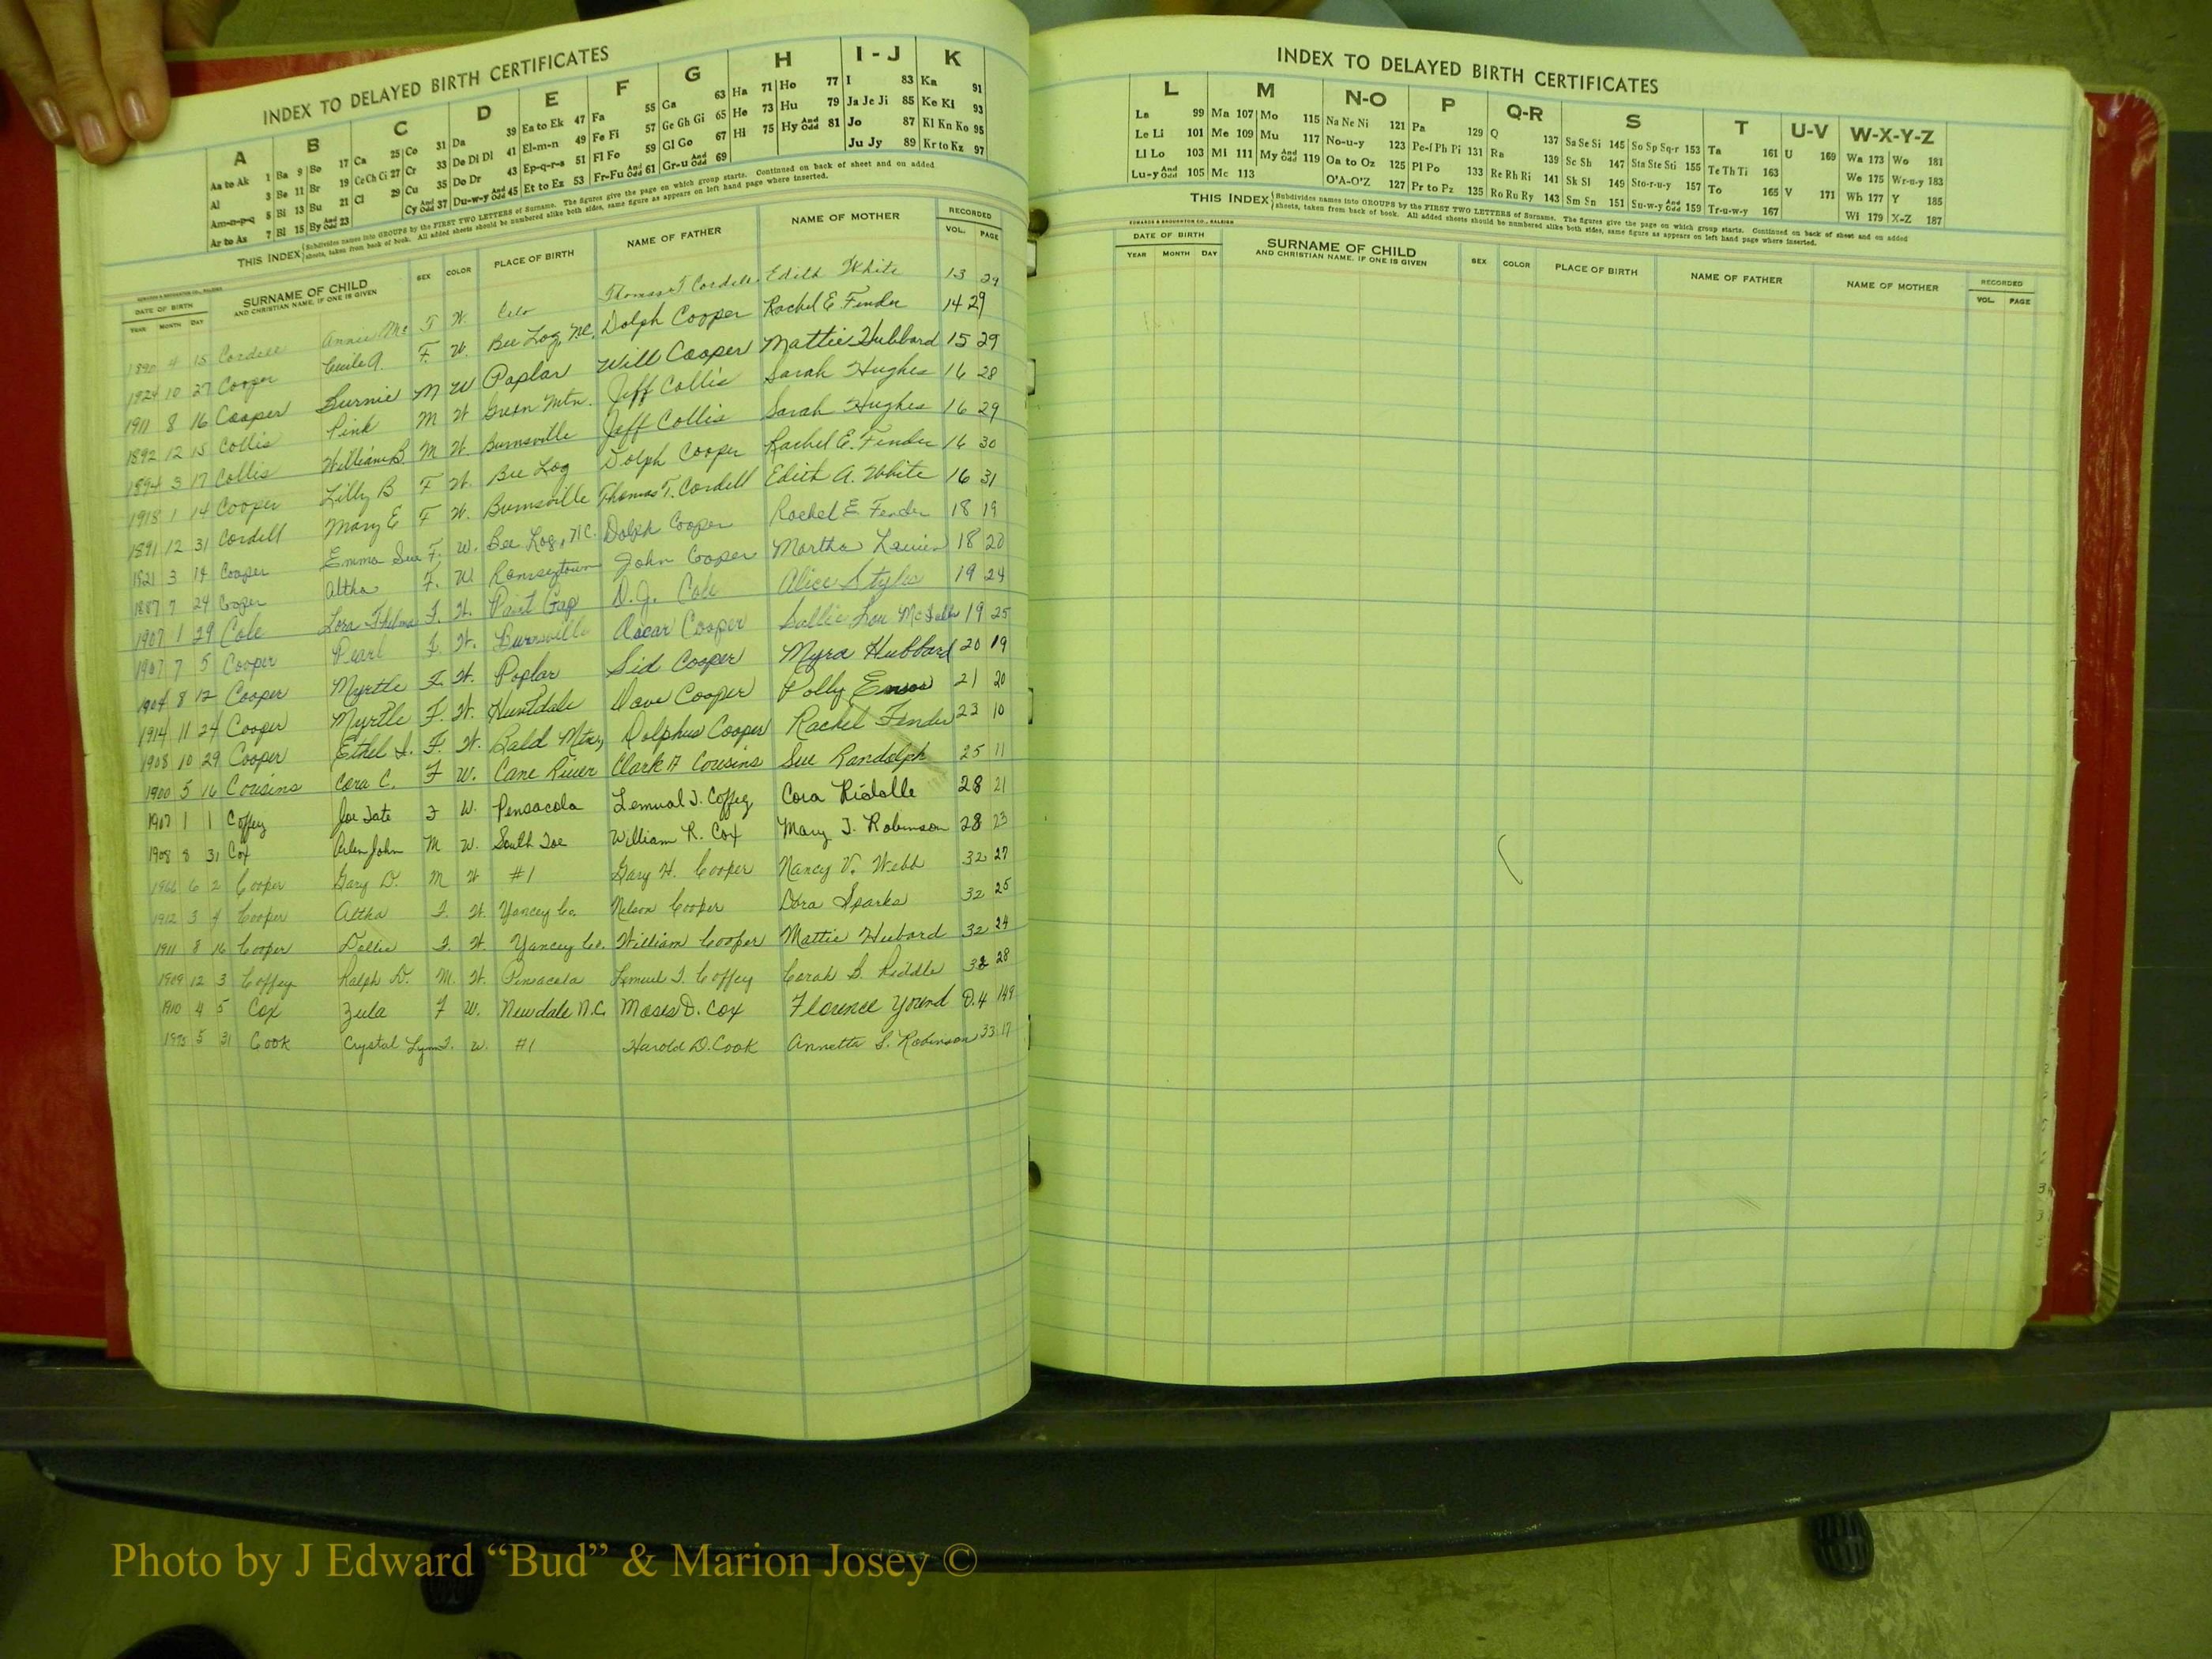 INDEX TO DELAYED BIRTH CERTIFICATES
A B C D E F G H I - J K
Aa to Ak 1 Ba 9 Bo 17 Ca 25 Co 31 Da 39 Ea to Ek 47 Fa 55 Ga 63 Ha 71 Ho 77 I 83 Ka 91
Al 3 Be 11 Br 19 Ce Ch Ci 27 Cr 33 De Di Dl 41 El-m-n 49 Fe Fi 57 Ge Gh Gi 65 He 73 Hu 79 Ja Je Ji 85 Ke Ki 93
Am-n-p-q 5 Bi 13 Bu 21 Cl 29 Cu 35 Do Dr 43 Ep-q-r-s 51 Fl Fo 59 Gl Go 67 Hi 75 Hy And Odd 81 Jo 87 Kl Kn Ko 95
Ar to Az 7 Bl 15 By And Odd 23 Cy And Odd 37 Du-w-y And Odd 45 Et to Ez 53 Fr-Fu And Odd 61 Gr-u And Odd 69 Ju Jy 89 Kr to Kz 97
THIS INDEX Subdivides names into GROUPS by the FIRST TWO LETTERS of Surname. The figures give the page on which group starts. Continued on back of sheet and on added sheets, taken from back of book. All added sheets should be numbered alike both sides, same figure as appears on left hand page where inserted.
DATE OF BIRTH SURNAME OF CHILD AND CHRISTIAN NAME, IF ONE IS GIVEN SEX COLOR PLACE OF BIRTH NAME OF FATHER NAME OF MOTHER RECORDED
YEAR MONTH DAY VOL. PAGE
1890 4 15 Cordell Annie Mc F W. Celo Thomas T Cordell Edith White 13 29
1924 10 27 Cooper A. F. W. Bee Log, N.C. Dolph Cooper Rachel E Fender 14 29
1911 8 16 Cooper Burnie M W Poplar Will Cooper Mattie Hubbard 15 29
1892 12 15 Collis Pink M W Green Mtn. Jeff Collis Sarah Hughes 16 28
1894 3 17 Collis William B M W. Burnsville Jeff Collis Sarah Hughes 16 29
1918 1 14 Cooper Lilly B F W. Bee Log Dolph Cooper Rachel E. Fender 16 30
1891 12 31 Cordell Mary E F W. Burnsville Thomas T. Cordell Edith A. White 16 31
1921 3 14 Cooper Emma Sue F. W. Bee Log, N.C. Dolph Cooper Rachel E. Fender 18 19
1887 7 24 Cooper Altha F. W Ramseytown John Cooper Martha 18 20
1907 1 29 Cole Lora Thelma F. W. Paint Gap D.J. Cole Alice Styles 19 24
1907 7 5 Cooper Pearl F. W. Burnsville Oscar Cooper Sallie Lou 19 25
1904 8 12 Cooper Myrtle F. W. Poplar Sid Cooper Myra Hubbard 20 19
1914 11 24 Cooper Myrtle F. W. Huntdale Dave Cooper Polly 21 20
1908 10 29 Cooper Ethel F. W. Bald Mtn, Dolphus Cooper Rachel Fender 23 10
1900 5 16 Cousins Cora C. F W. Cane River Clark Cousins Sue Randolph 25 11
1907 1 1 Coffey Joe Tate F W. Pensacola Lemual J. Coffey Cora Riddle 28 21
1908 8 31 Cox Arlen John M W. South Toe William R. Cox Mary J. Robinson 28 23
1966 6 2 Cooper Gary D. M W #1 Gary H. Cooper Nancy V. Webb 32 27
1912 3 4 Cooper Altha F. W. Yancey Co. Nelson Cooper Dora Sparks 32 25
1911 8 16 Cooper Dollie F. W. Yancey Co. William Cooper Mattie Hubard 32 24
1909 12 3 Coffey Ralph D. M. W. Pensacola Lemuel J. Coffey Corah B. Riddle 32 28
1910 4 5 Cox Zula F W. Newdale N.C. Moses D. Cox Florence Yound D.4 149
5 31 Cook Crystal Lynn F. W. #1 Harold D. Cook Annette S. Robinson 33 17
INDEX TO DELAYED BIRTH CERTIFICATES
L M N-O P Q-R S T U-V W-X-Y-Z
La 99 Ma 107 Mo 115 Na Ne Ni 121 Pa 129 Q 137 Sa Se Si 145 So Sp Sq-r 153 Ta 161 U 169 Wa 173 Wo 181
Le Li 101 Me 109 Mu 117 No-u-y 123 Pe-f Ph Pi 131 Ra 139 Sc Sh 147 Sta Ste Sti 155 Te Th Ti 163 We 175 Wr-u-y 183
Ll Lo 103 Mi 111 My And Odd 119 Oa to Oz 125 Pl Po 133 Re Rh Ri 141 Sk Sl 149 Sto-r-u-y 157 To 165 V 171 Wh 177 Y 185
Lu-y And Odd 105 Mc 113 O'A-O'Z 127 Pr to Pz 135 Ro Ru Ry 143 Sm Sn 151 Su-w-y And Odd 159 Tr-u-w-y 167 Wi 179 X-Z 187
THIS INDEX Subdivides names into GROUPS by the FIRST TWO LETTERS of Surname. The figures give the page on which group starts. Continued on back of sheet and on added sheets, taken from back of book. All added sheets should be numbered alike both sides, same figure as appears on left hand page where inserted.
EDWARDS & BROUGHTON CO., RALEIGH
DATE OF BIRTH SURNAME OF CHILD AND CHRISTIAN NAME, IF ONE IS GIVEN SEX COLOR PLACE OF BIRTH NAME OF FATHER NAME OF MOTHER RECORDED
YEAR MONTH DAY VOL. PAGE
Photo by J Edward “Bud” & Marion Josey ©